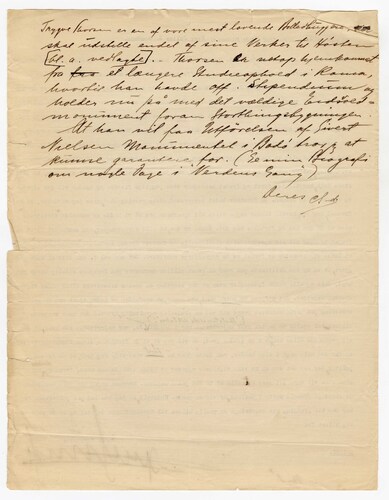 Trygve Thorsen er en af vore mest lovende Billedhuggere
skal udstille endel af sine Verker til Hösten
bl. a. vedlagte). Thorsen er netop hjemkommet
fra et længere Studieophold i Roma,
hvortil han havde off. Stipendium og
holder nu på med det vældige Eidsvold-
monument foran Storthingsbygningen.
At han vil faa Udförelsen af Sivert
Nielsen Monumentet i Bodö tror jeg at
kunne garantere for. (Se min Biografi
om nogle Dage i Verdens Gang)
Deres